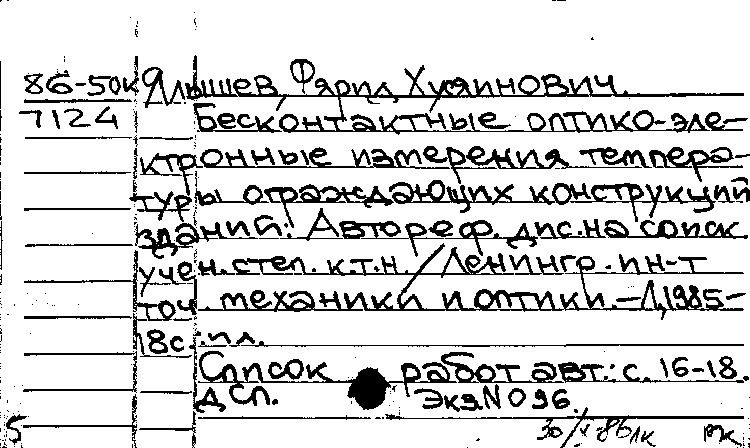 86-50к Ялышев, Фярид Хусяинович.
7124 Бесконтактные оптико-эле-
ктронные измерения темпера-
туры ограждающих конструкций
зданий: Автореф. дис. на соиск.
учен. степ. к.т.н. / Ленингр. ин-т
точ. механики и оптики. – Л, 1985 –
18с.: ил.
Список работ авт.: с. 16-18.
ДСП. Экз. N 096.